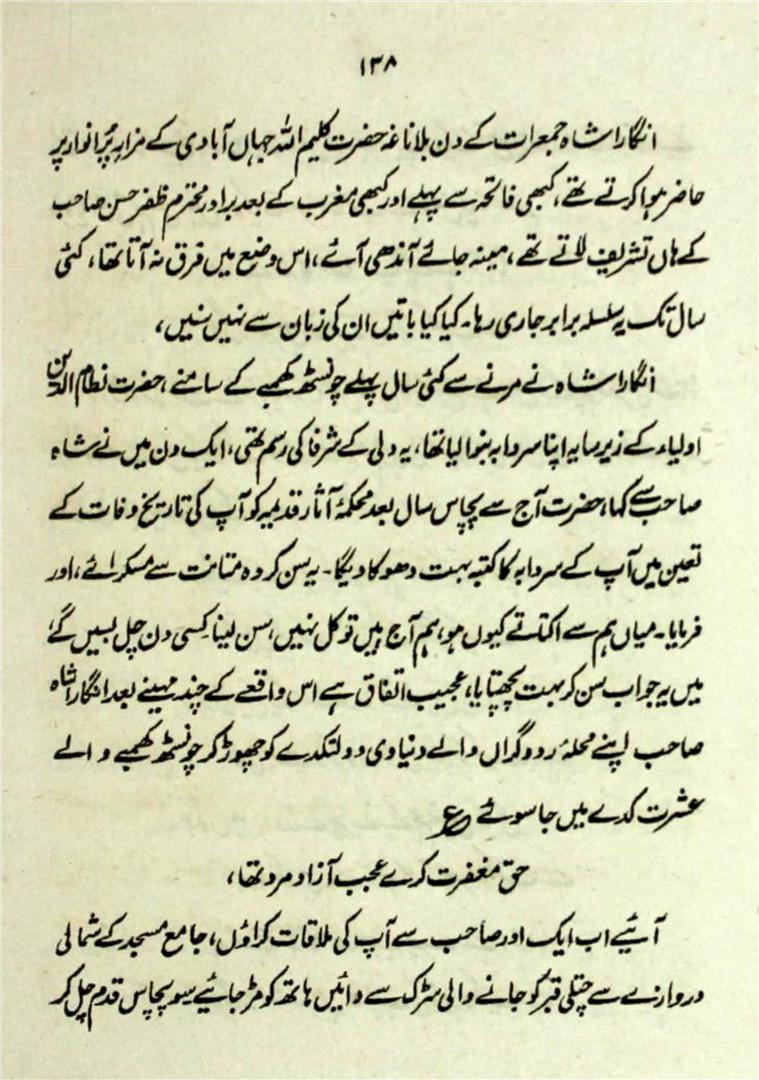 ۱۳۸
انگارا شاہ جمعرات کے دن بلاناغہ حضرت کلیم اللہ جہاں آبادی کے مزارِ پُر انوار پر
حاضر ہوا کرتے تھے، کبھی فاتحہ سے پہلے اور کبھی مغرب کے بعد برادر محترم ظفر حسن صاحب
کے ہاں تشریف لاتے تھے، مینہ جائے آندھی آئے، اس وضع میں فرق نہ آتا تھا، کئی
سال تک یہ سلسلہ برابر جاری رہا۔ کیا کیا باتیں ان کی زبان سے نہیں سنیں،
انگارا شاہ نے مرنے سے کئی سال پہلے چونسٹھ کھمبے کے سامنے، حضرت نظام الدین
اولیاء کے زیر سایہ اپنا سردابہ بنوا لیا تھا، یہ دلی کے شرفا کی رسم تھی، ایک دن میں نے شاہ
صاحب سے کہا، حضرت آج سے پچاس سال بعد محکمۂ آثار قدیمہ کو آپ کی تاریخ وفات کے
تعین میں آپ کے سردابہ کا کتبہ بہت دھوکا دیگا۔ یہ سن کر وہ متانت سے مسکرائے، اور
فرمایا۔ میاں ہم سے اکتاتے کیوں ہو، ہم آج ہیں تو کل نہیں، سن لینا کسی دن چل بسیں گے،
میں یہ جواب سن کر بہت پچھتایا، عجیب اتفاق ہے اس واقعے کے چند مہینے بعد انگارا شاہ
صاحب اپنے محلہ ردوگراں والے دنیاوی دولتکدے کو چھوڑ کر چونسٹھ کھمبے والے
عشرت کدے میں جا سوئے ع
حق مغفرت کرے عجب آزاد مرد تھا،
آئیے اب ایک اور صاحب سے آپ کی ملاقات کراؤں، جامع مسجد کے شمالی
دروازے سے چتلی قبر کو جانے والی سڑک سے دائیں ہاتھ کو مڑ جائیے سو پچاس قدم چل کر